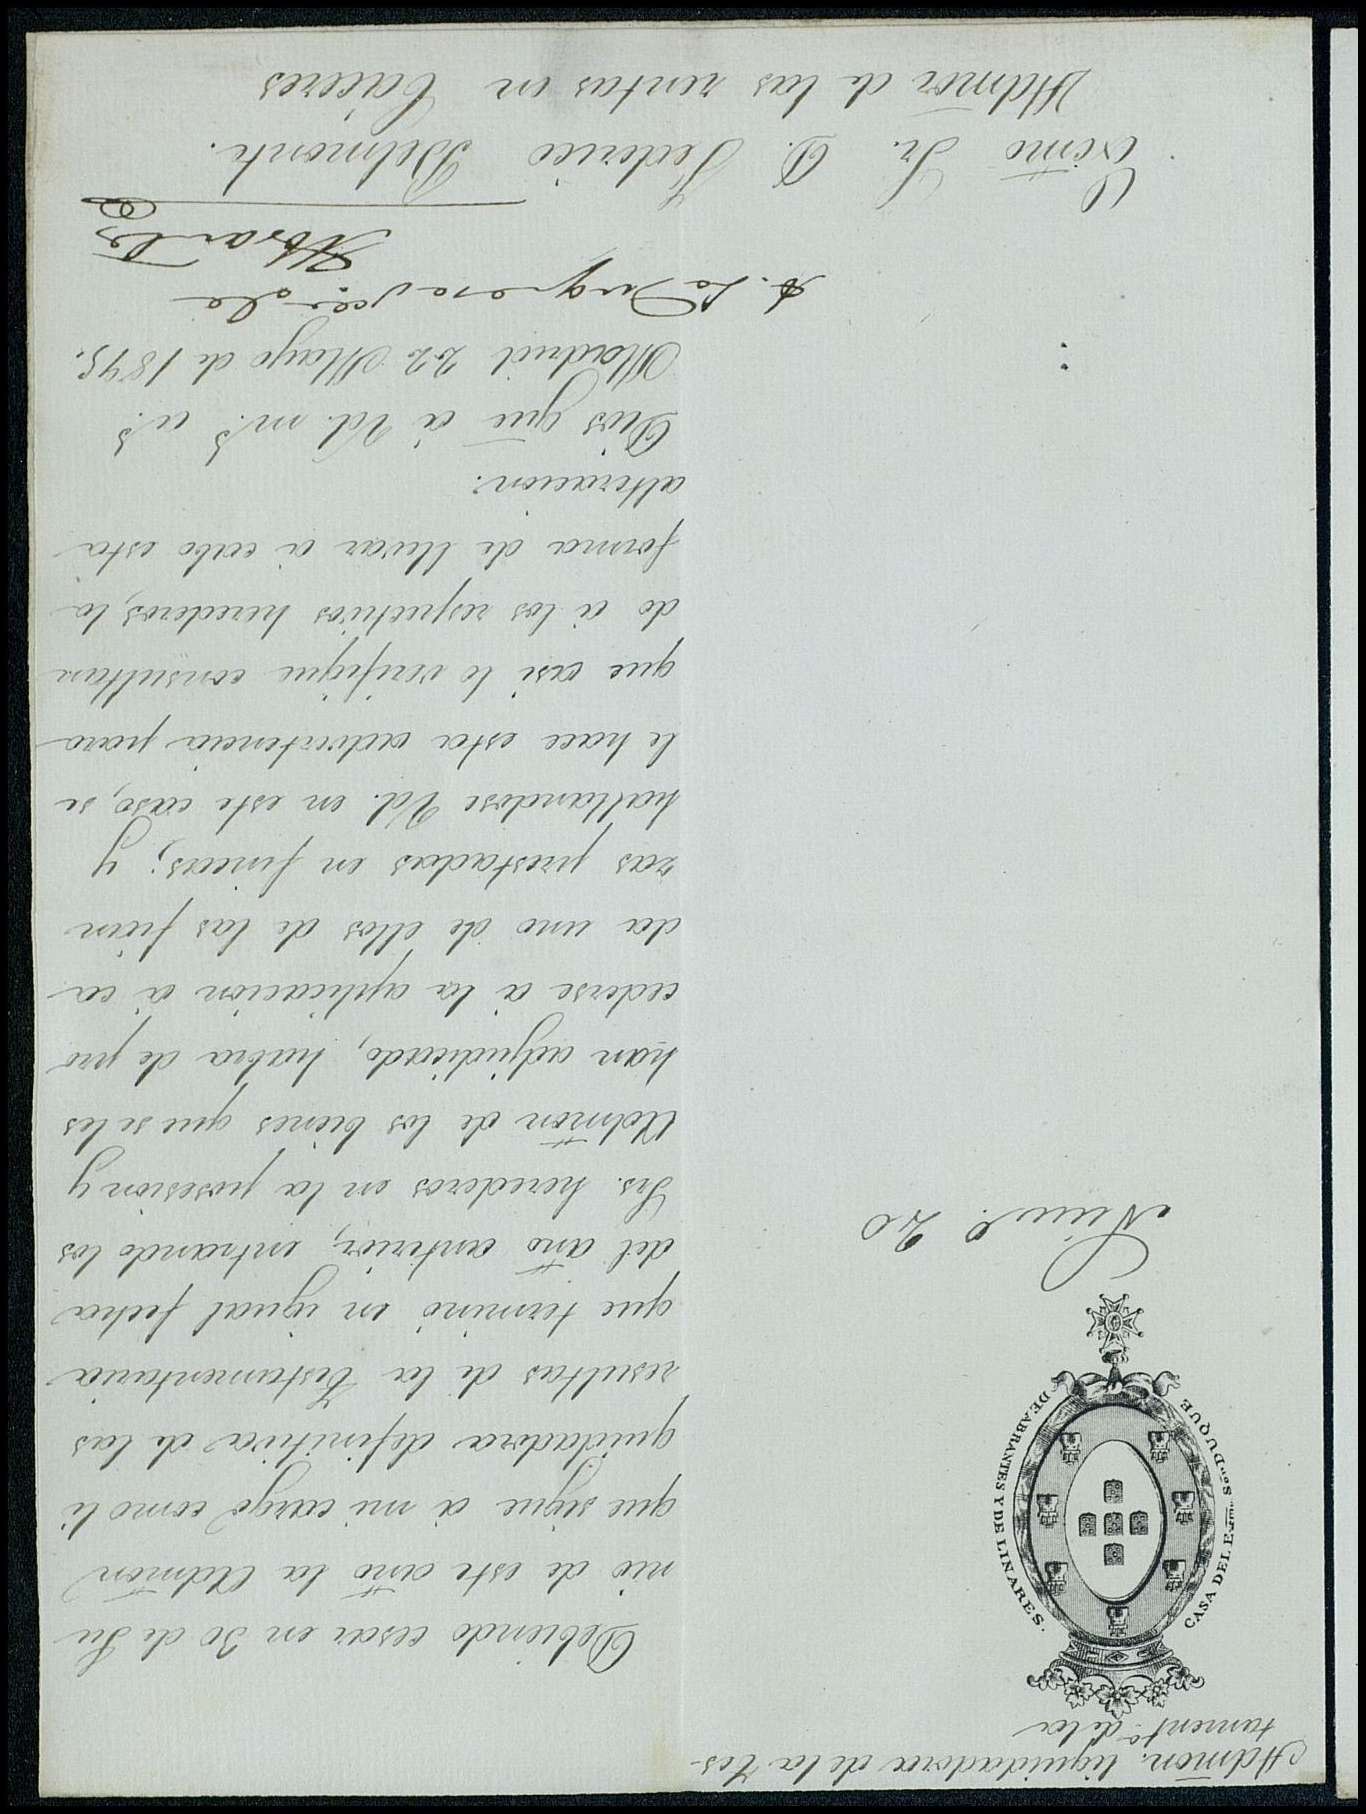 Admōn. liquidadora de la Tes-
tament.ª de la
CASA DEL EXmo. Sor. DUQUE
DE ABRANTES Y DE LINARES.
Núm.º 20
Debiendo cesar en 30 de Ju
nio de este año la Admōn
que sigue á mi cargo como li
quidadora definitiva de las
resultas de la Testamentaria
que terminó en igual fecha
del año anterior, entrando los
Srs. herederos en la posesion y
Admōn de los bienes que se les
han adjudicado, habra de pro
cederse á la aplicacion á ca
da uno de ellos de las fian
zas prestadas en fincas; y
hallandose Vd. en este caso, se
le hace esta advertencia para
que asi lo verifique consultan
do á los respectivos herederos, la
forma de llevar á cabo esta
alteracion.
Dios gue á Vd. m.s a.s
Madrid 22 Mayo de 1875.
La Duquesa viuda
Abrantes
Exc̄mo Sr. D. Federico Belmonte.
Admōr de las rentas en Caceres